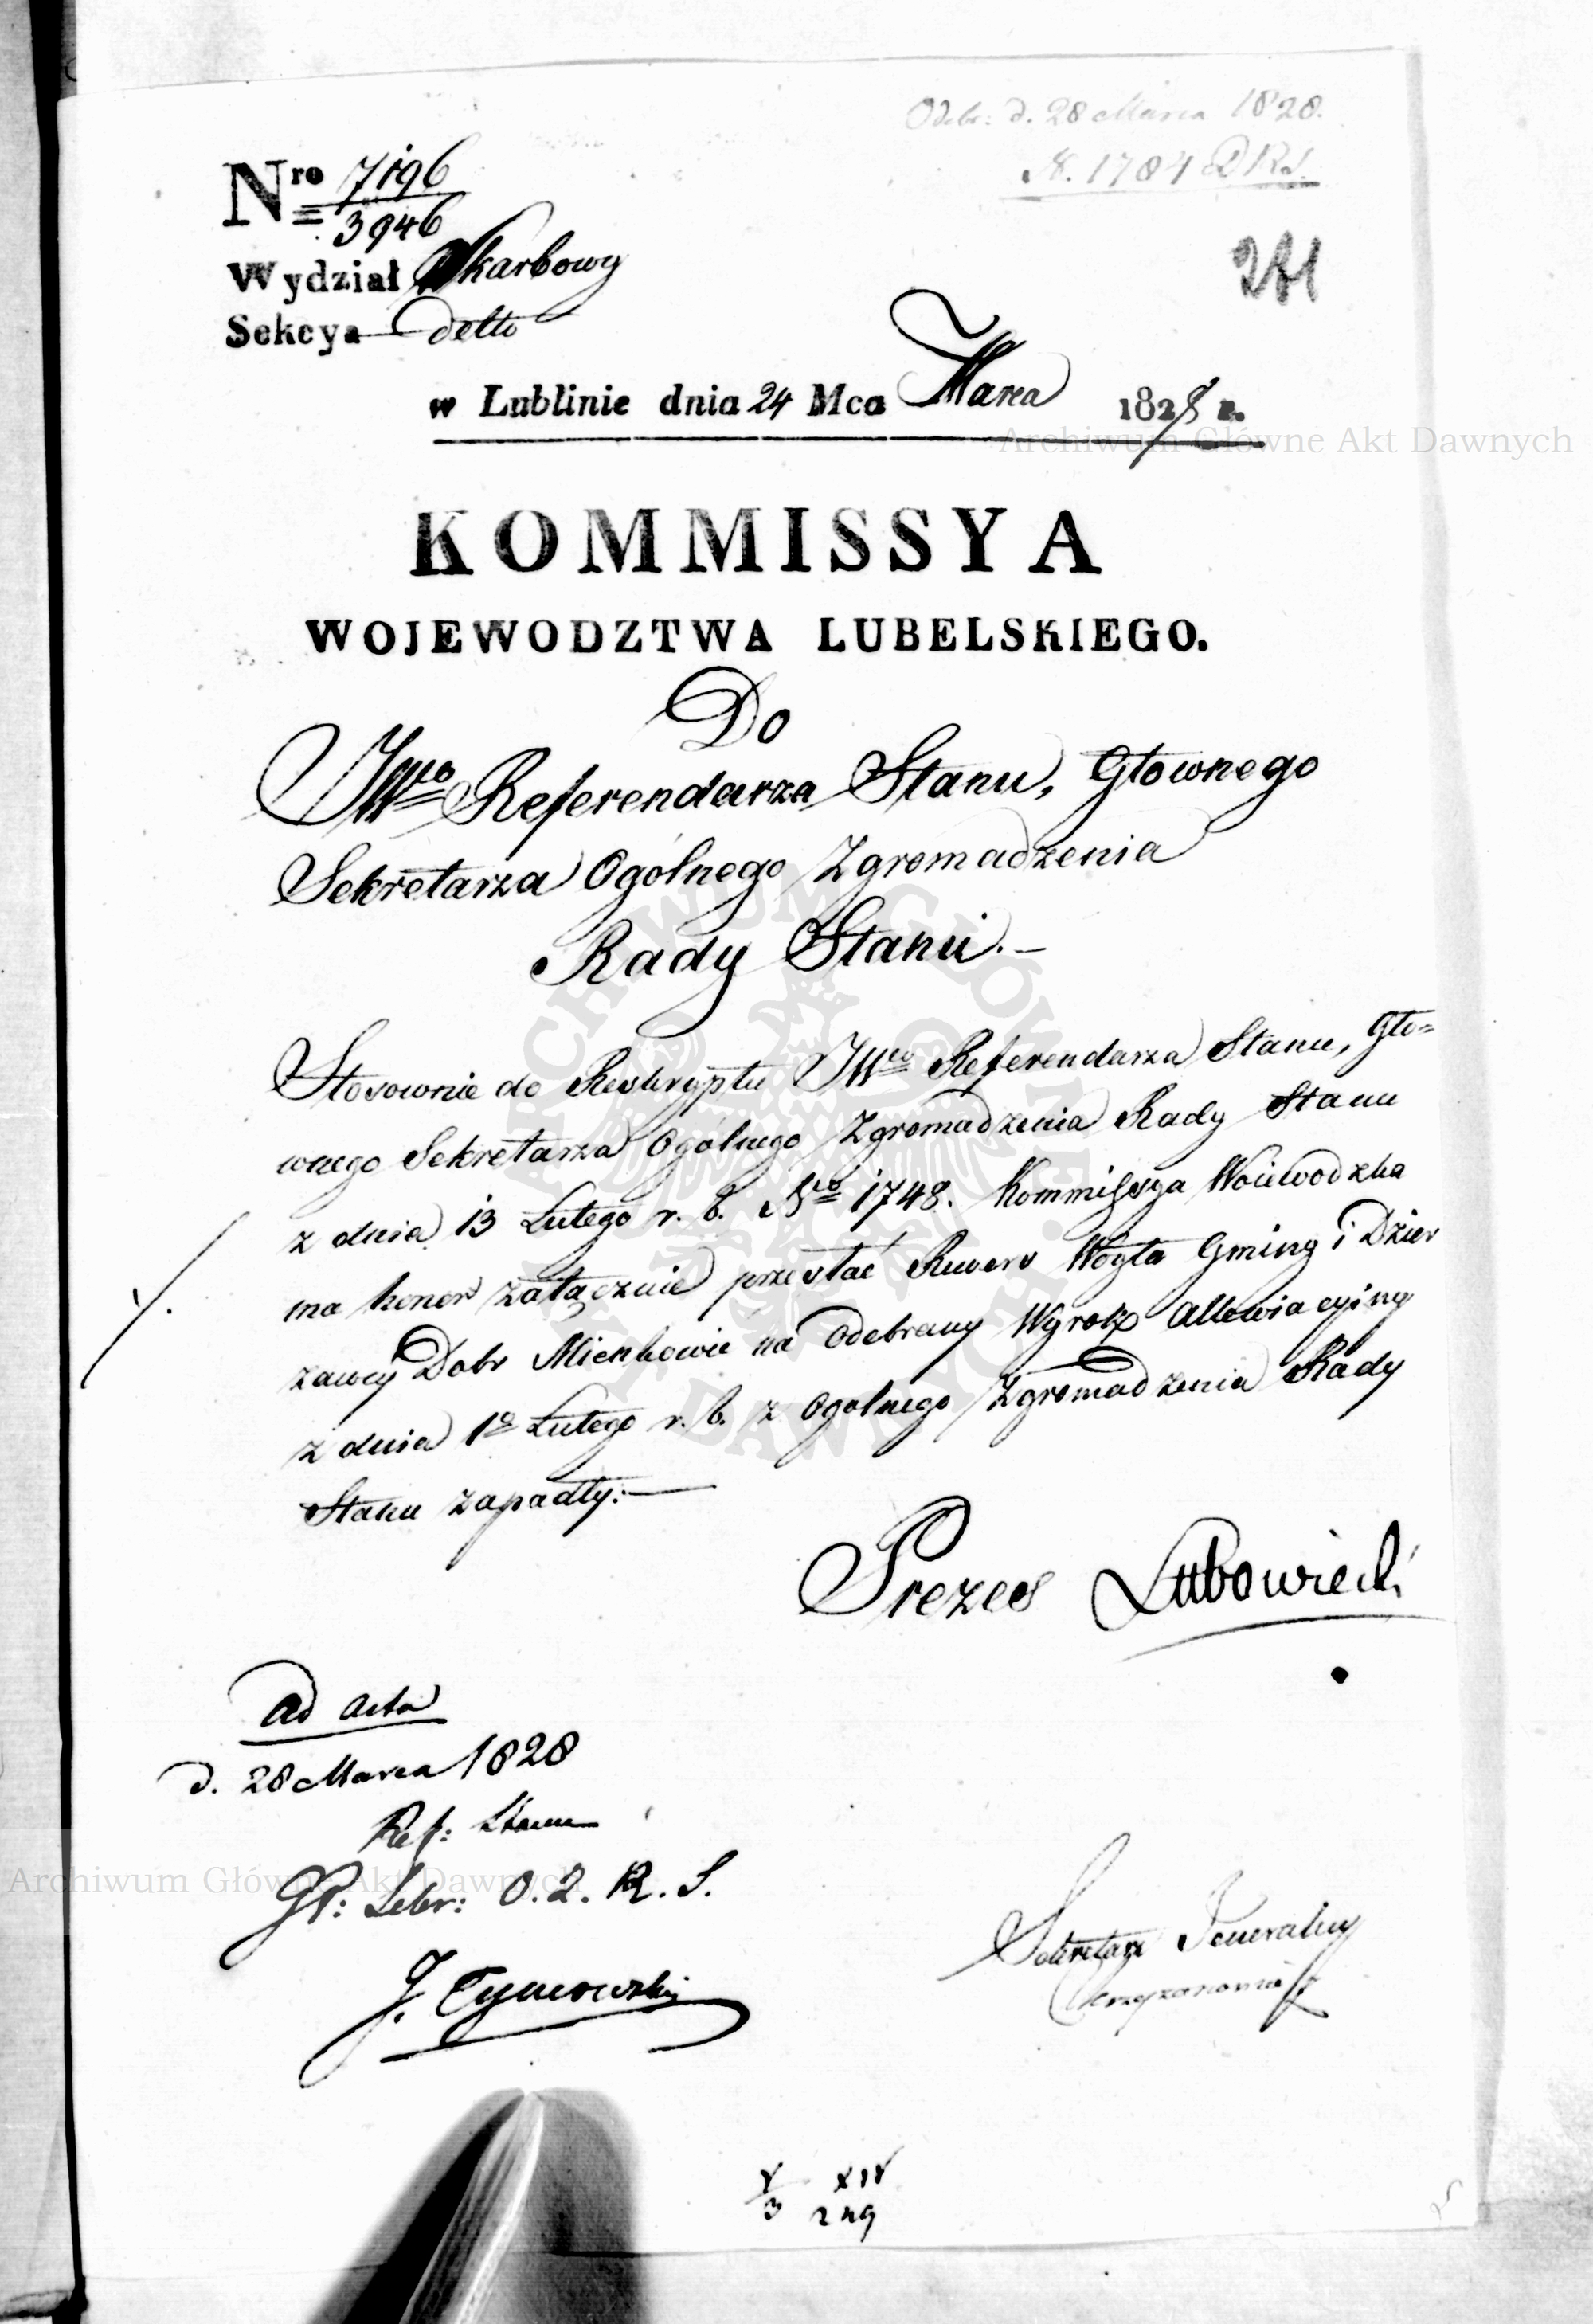 Odebr: d. 28 Marca 1828.
N. 1784 DRS.
Nro 7196
3946
281
Wydział Skarbowy
Sekcya detto
w Lublinie dnia 24 Mca Marca 1828 r.
Archiwum Główne Akt Dawnych
KOMMISSYA
WOJEWODZTWA LUBELSKIEGO.
Do
JWgo Referendarza Stanu, Głownego
Sekretarza Ogólnego Zgromadzenia
Rady Stanu.-
Stosownie do Reskryptu JWgo Referendarza Stanu, Gło=
wnego Sekretarza Ogólnego Zgromadzenia Rady Stanu
z dnia 13 Lutego r. b. Nro 1748. Kommissya Woiewodzka
ma honor załącznie przesłać Rewers Woyta Gminy i Dzier
zawcy Dobr Mienkowie na odebrany Wyrok allewiacyiny
z dnia 1o Lutego r. b. z Ogolnego Zgromadzenia Rady
Stanu zapadły:—
Prezes Lubowiecki
ad acta
d. 28 Marca 1828
Ref: Stanu
Gł: Sekr: O. Z. R. S.
Archiwum Główne Akt Dawnych
J. Tymowski
Sekretarz Jeneralny
V XIV
3 249